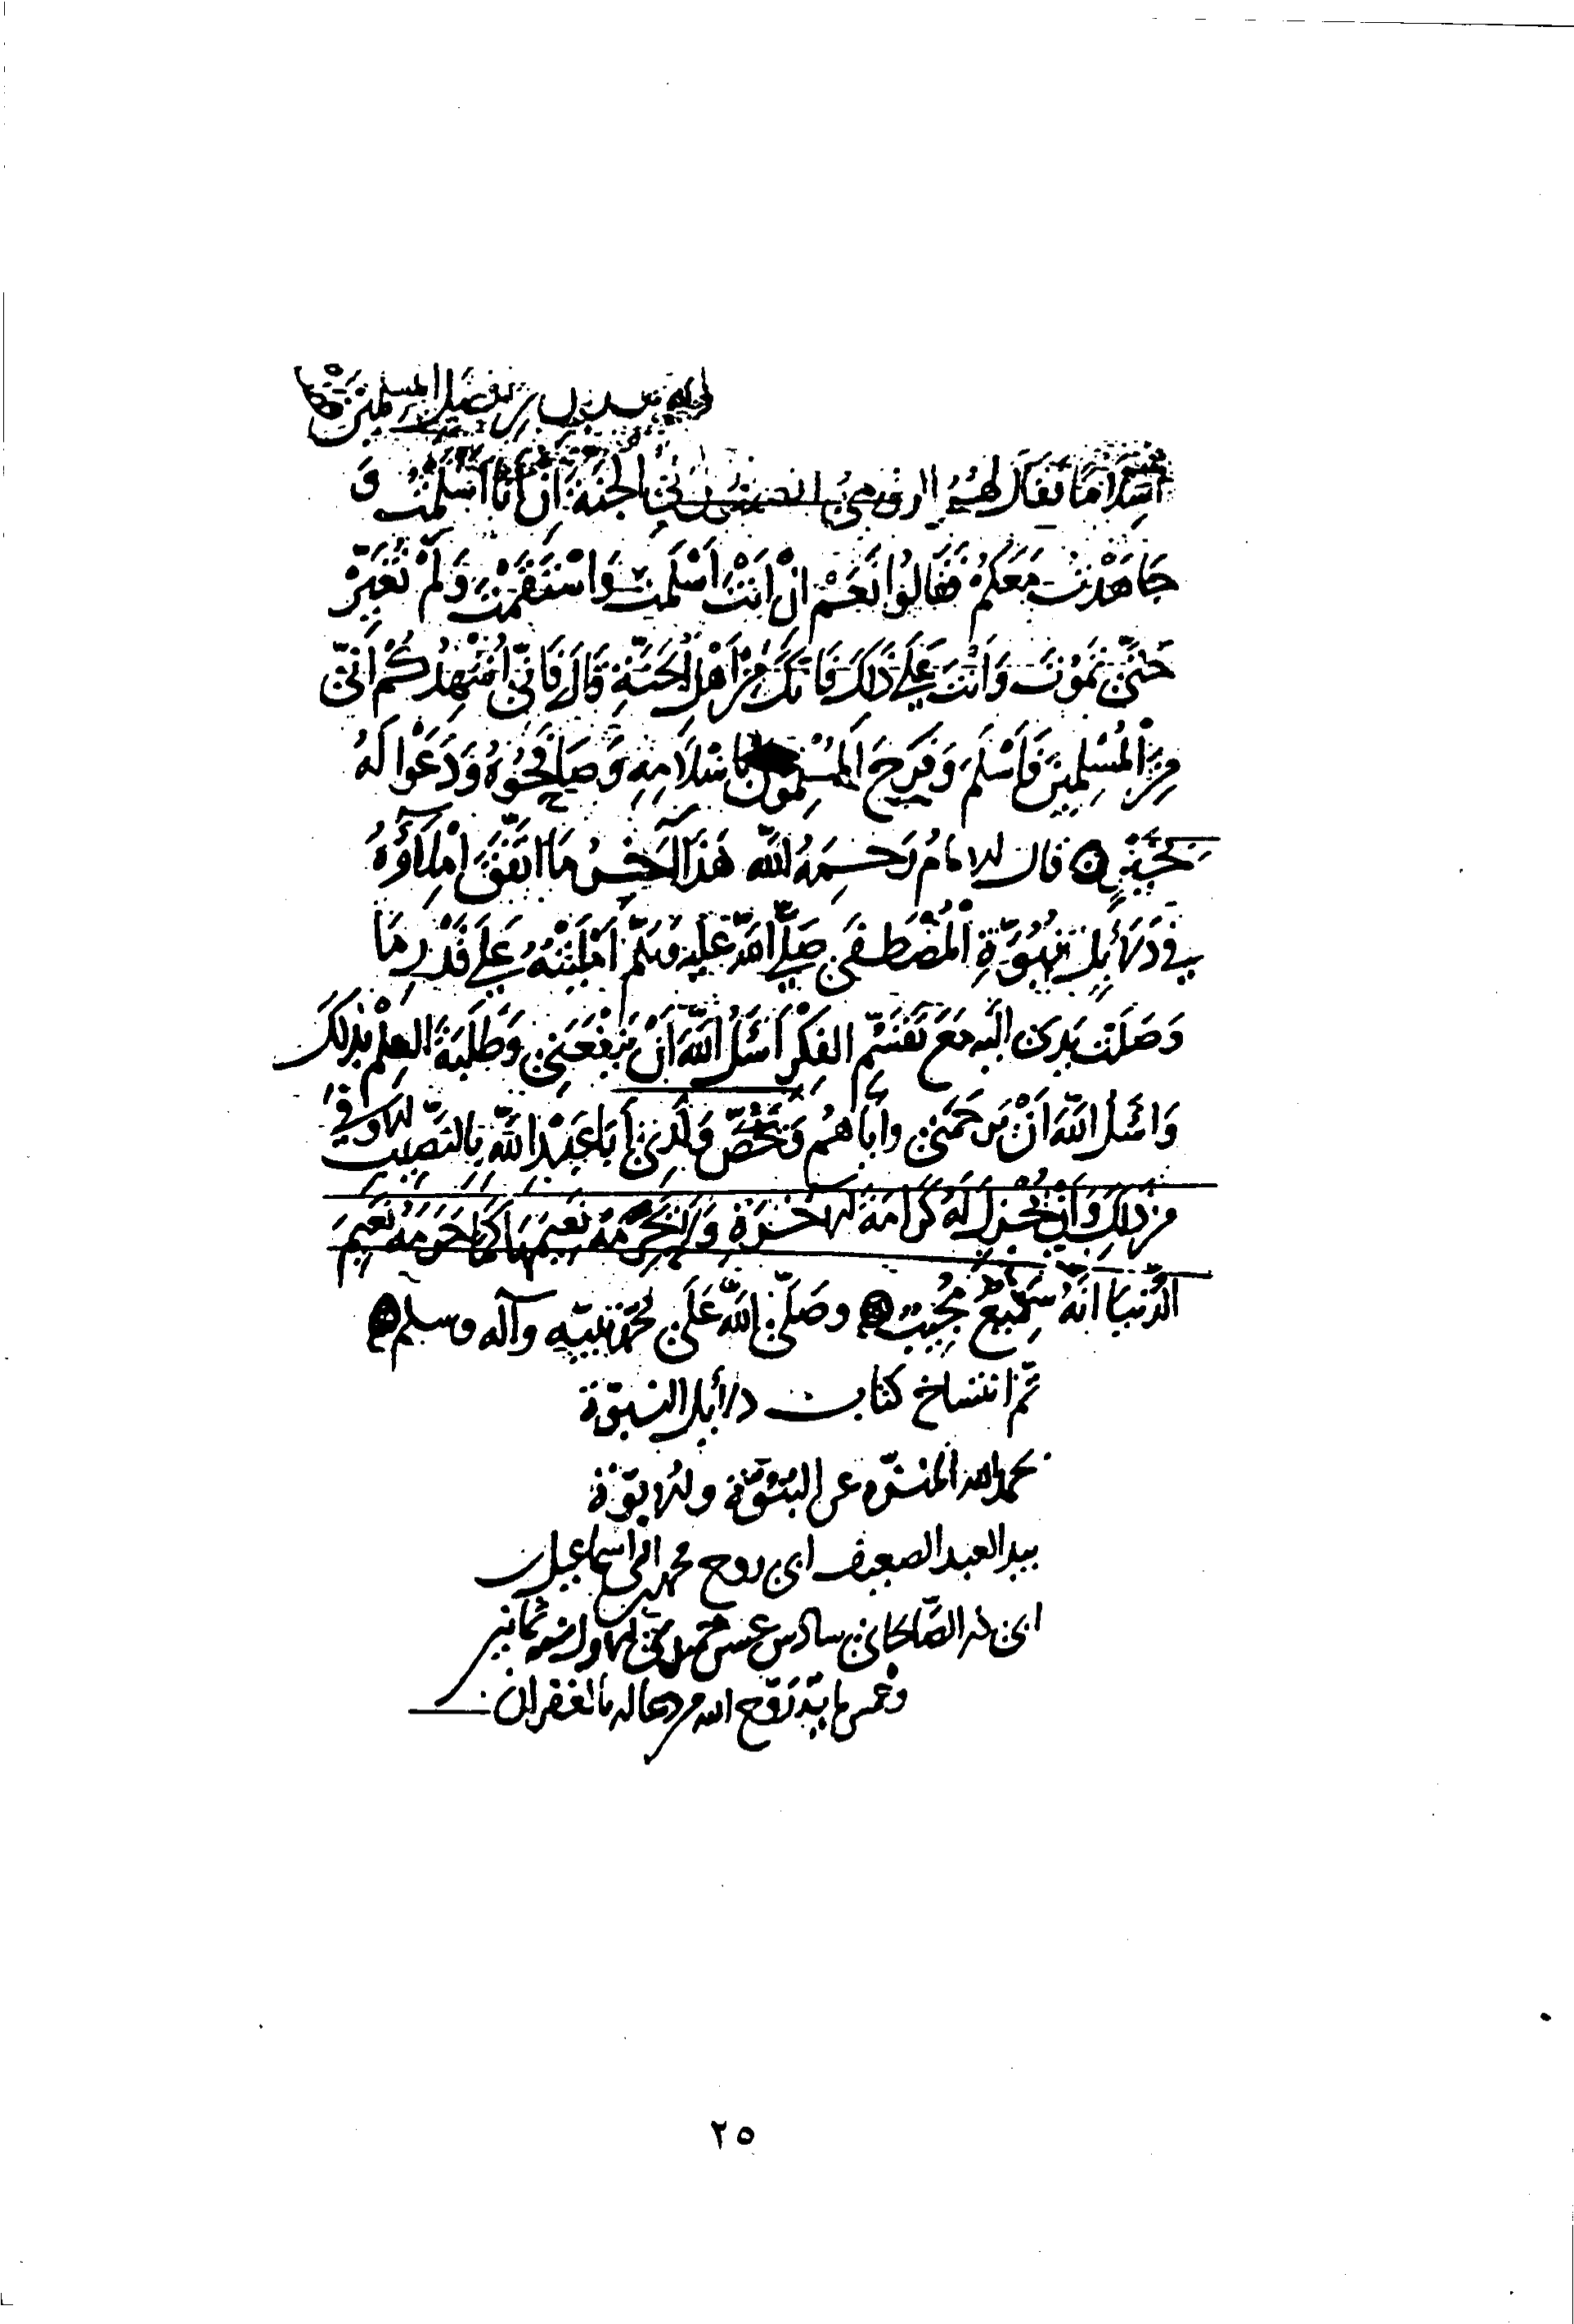 المسلمين
فقال لهم الرومي الجنة ان أنا أسلمت و
جَاهَدْتُ مَعَكُمْ فَقَالُوا نَعَمْ اِنْ اَنْتَ اَسْلَمْتَ وَاسْتَقَمْتَ وَلَمْ تُغَيِّرْ
حَتّى تَمُوتَ وَاَنْتَ عَلَى ذَلِكَ فَاِنَّكَ مِنْ اَهْلِ الْجَنَّةِ قَالَ فَاِنِّي اُشْهِدُكُمْ اَنِّي
مِنَ الْمُسْلِمِينَ فَاَسْلَمَ وَفَرِحَ الْمُسْلِمُونَ بِاسْلَامِهِ وَصَافَحُوهُ وَدَعَوْا لَهُ
قال الامامُ رَحِمَهُ اللَّه هَذَا آخِرُ مَا اتَّفَقَ اِمْلَاؤُهُ
في دَلَائِلِ نُبُوَّةِ الْمُصْطَفَى صَلَّى الله عَلَيْهِ وسَلَّم اَمْلَيْتُهُ عَلَى قَدْرِ مَا
وَصَلَتْ يَدِى اِلَيْهِ مَعَ تَقَسُّمِ الفِكْرِ اَسْئَلُ اللَّهَ اَنْ يَنْفَعَنِي وَطَلَبَةَ العِلْمِ بِذَلِكَ
وَاَسْئَلُ اللَّهَ اَنْ يَرْحَمَنِي وايَاهُمْ وَيَخُصَّ وَلَدِي اَبَا عَبْدِ اللَّهِ بِالنَّصِيبِ الاوفى
مِنْ ذَلِكَ وَاَنْ يُجْزِلَ لَهُ كَرَامَةَ الاخِرَةِ وَلَا يَحْرِمَهُ نَعِيمَهَا كَمَا حَرَمَهُ نَعِيمَ
الدُّنْيَا اِنَّهُ سَمِيعٌ مُجِيبٌ وصَلَّى اللَّهُ عَلَى مُحَمَّدٍ نبِيِّه وآله وسلم
تمّ انتساخ كتاب دلائل النبوّة
بحمد الله المنزّه عن البنُوّة والابوّة
بيد العبد الضعيف ابى روح محمد بن ابى اسماعيل
ابن الصّالحاني سادس عشر جمادى الاولى سنة ثمانين
وخمس مايه روّح الله من دعا له بالغفران
٢٥